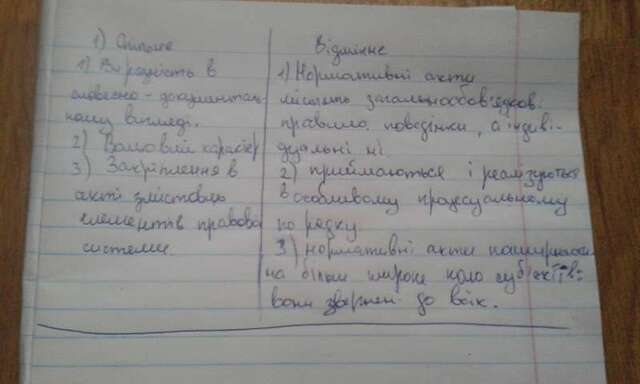 1) Спільне
1) Виражають в
словесно-документаль-
ному вигляді.
2) Владовий характер
3) Закріплення в
акті змістовних
елементів правової
системи
Відмінне
1) Нормативні акти
містять загальнообов'язкові
правила поведінки, а індиві-
дуальні ні
2) приймаються і реалізуються
в особливому процесуальному
порядку
3) нормативні акти поширюються
на більш широке коло суб'єктів:
вони звернені до всіх.